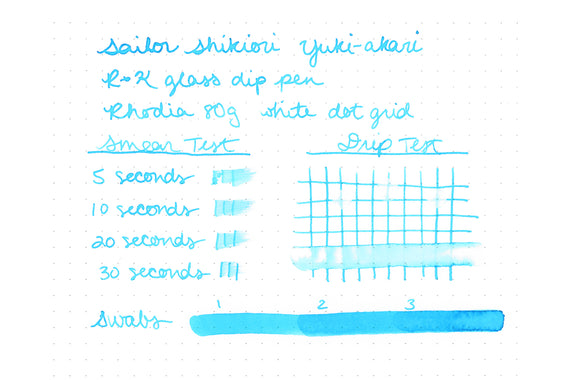 Sailor Shikiori Yuki-akari
R+K glass dip pen
Rhodia 80g white dot grid
Smear Test Drip Test
5 seconds
10 seconds
20 seconds
30 seconds
1 2 3
Swabs